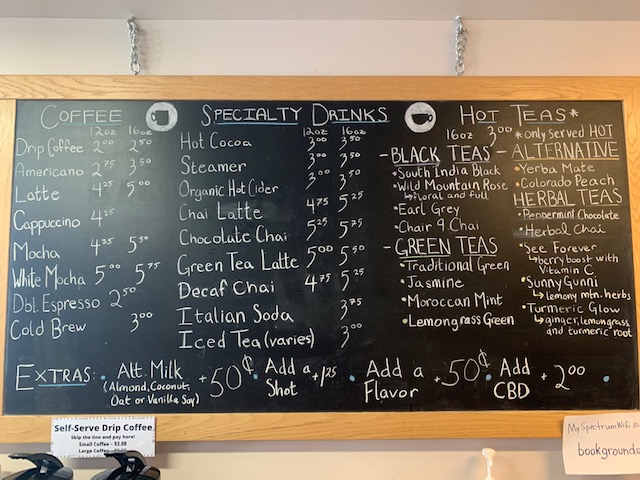 COFFEE
12oz 16oz
Drip Coffee 2.00 2.50
Americano 2.75 3.50
Latte 4.25 5.00
Cappuccino 4.25
Mocha 4.75 5.50
White Mocha 5.00 5.75
Dbl. Espresso 2.50
Cold Brew 3.00
SPECIALTY DRINKS
12oz 16oz
Hot Cocoa 3.00 3.50
Steamer 3.00 3.50
Organic Hot Cider 3.00 3.50
Chai Latte 4.75 5.25
Chocolate Chai 5.25 5.75
Green Tea Latte 5.00 5.50
Decaf Chai 4.75 5.25
Italian Soda 3.75
Iced Tea (varies) 3.00
HOT TEAS*
16oz 3.00
*only Served HOT
- BLACK TEAS -
•South India Black
•Wild Mountain Rose
↳floral and full
•Earl Grey
•Chair 9 Chai
- GREEN TEAS
•Traditional Green
•Jasmine
•Moroccan Mint
•Lemongrass Green
ALTERNATIVE
•Yerba Mate
•Colorado Peach
HERBAL TEAS
•Peppermint Chocolate
•Herbal Chai
•See Forever
↳berry boost with
Vitamin C
•Sunny Gunni
↳lemony mtn. herbs
•Turmeric Glow
↳ginger, lemongrass
and turmeric root
EXTRAS: • Alt. Milk +50¢ • Add a Shot +1.25 • Add a Flavor +50¢ • Add CBD +2.00 •
(Almond, Coconut,
Oat or Vanilla Soy)
Self-Serve Drip Coffee
Skip the line and pay here!
Small Coffee - $2.08
Large Coffee
MySpectrumWiFi
bookgrounds